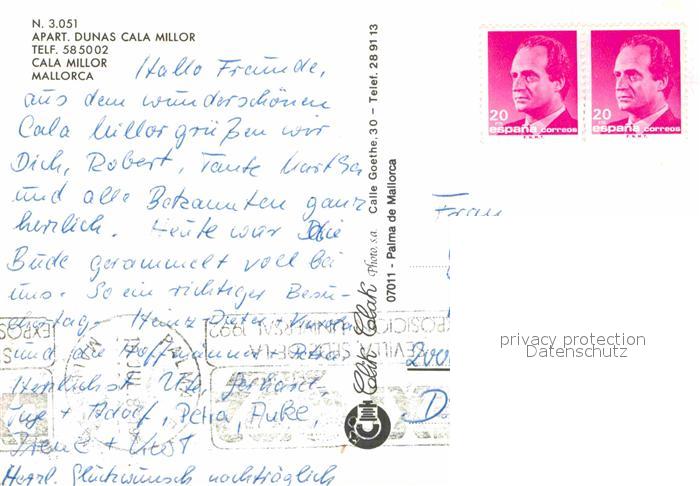 N. 3.051
APART. DUNAS CALA MILLOR
TELF. 585002
CALA MILLOR
MALLORCA
Hallo Freunde,
aus dem wunderschönen
Cala Millor grüßen wir
Dich, Robert, Tante Martha
und alle Bekannten ganz
herzlich. Heute war die
Bude gerammelt voll bei
uns. So ein richtiger Besu-
chertag. Heinz-Dieter +
und die Hoffmanns + Petra
Herzlichst Gerhard,
Inge + Adolf, Petra, Anke,
Irene +
Herzl. Glückwunsch nachträglich
Clik Clak Photo, s.a. Calle Goethe, 30 – Telef. 28 91 13
07011 - Palma de Mallorca
20 20
españa correos españa correos
F.N.M.T. F.N.M.T.
Frau
privacy protection
Datenschutz
EXPOS
EXPOSICION UNIVERSAL 1992
SEVILLA SEDE DE LA